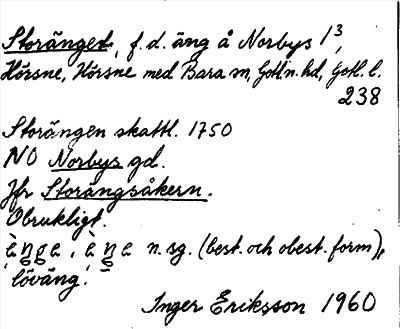 Storänget, f.d. äng å Norbys 1³,
Hörsne, Hörsne med Bara sn, Gotl. n. hd, Gotl. l.
238
Storängen skattl. 1750
NO Norbys gd.
Jfr Storängsåkern.
Obrukligt.
n.sg. (best. och obest. form),
löväng.
Inger Eriksson 1960